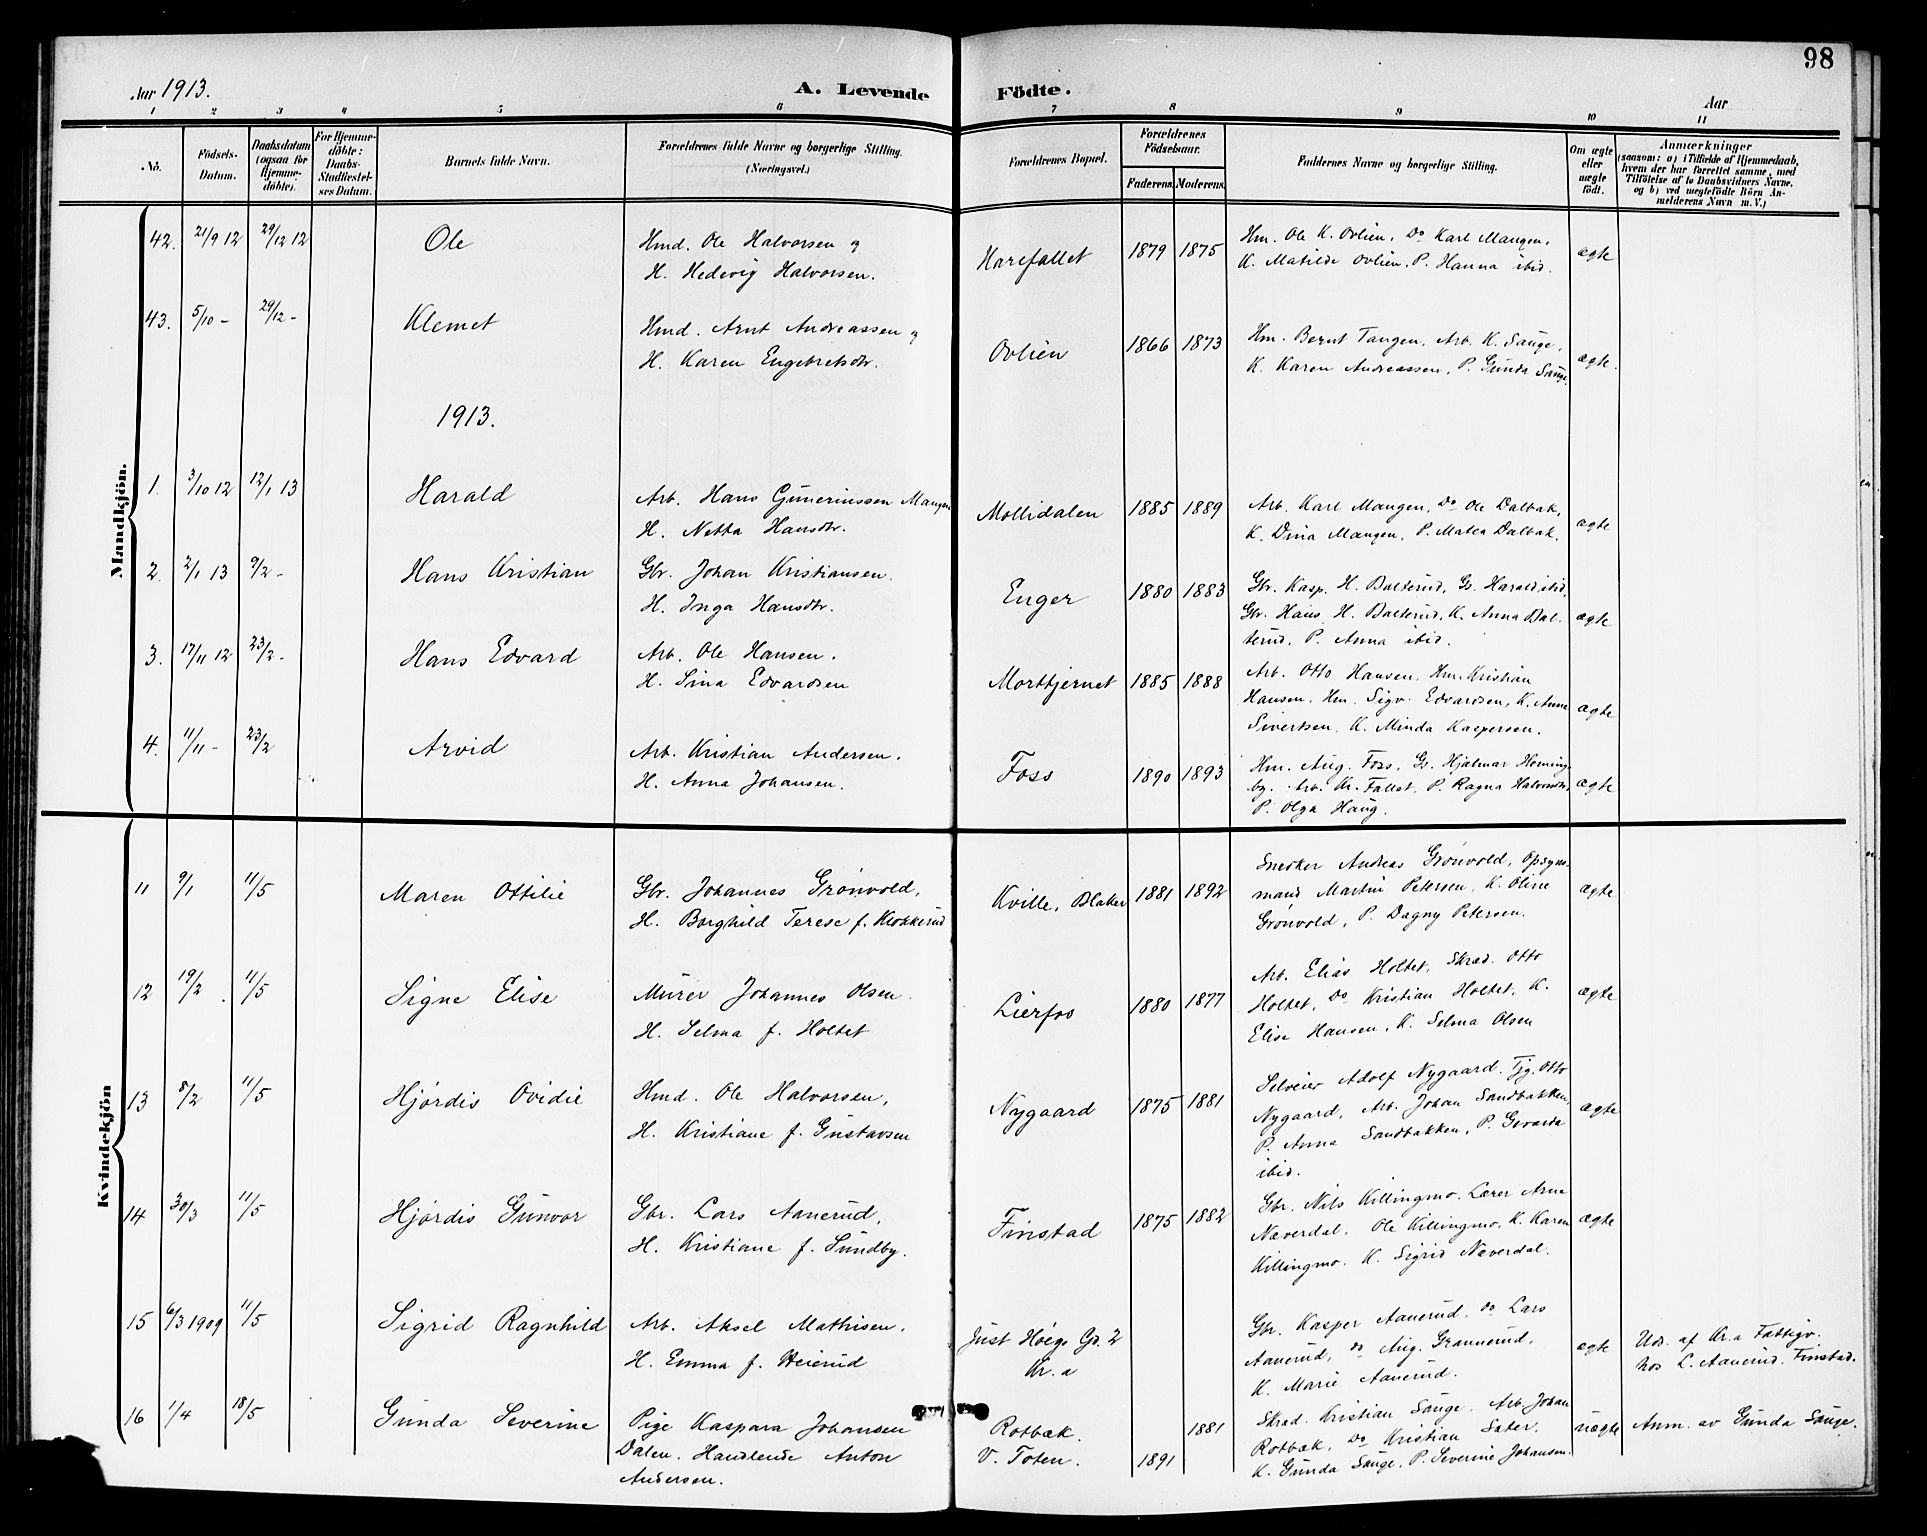 98
Aar 1913.
A. Levende Födte.
Aar
1 2 3 4 5 6 7 8 9 10 11
No.
Födsels-Datum.
Daabsdatum (ogsaa for Hjemme-döbte).
For Hjemme-döbte: Daabs-Stadfæstel-ses Datum.
Barnets fulde Navn.
Forældrenes fulde Navne og borgerlige Stilling. (Næringsvei.)
Forældrenes Bopæl.
Forældrenes Födselsaar.
Faderens. Moderens.
Faddernes Navne og borgerlige Stilling.
Om ægte eller uægte födt.
Anmærkninger
(saasom: a) i Tilfælde af Hjemmedaab,
hvem der har forrettet samme, med
Tilföielse af to Daabsvidners Navne.
og b) ved uægtefödte Börn An-
melderens Navn m. V.)
Mandkjön.
42. 21/9 12 29/12 12 Ole
Hmd. Ole Halvorsen og
H. Hedevig Halvorsen.
Harefallet 1879 1875
Hm. Ole K. Ovlien, Do Karl Mangen,
K. Matilde Ovlien, P. Hanna ibid.
ægte
43. 5/10 - 29/12 - Klemet
Hmd. Arnt Andreassen og
H. Karen Engebretsdtr.
Ovlien 1866 1873
Hm. Bernt Tangen, Arb. K. Sauge,
K. Karen Andreassen, P. Gunda Sauge
ægte.
1913.
1. 3/10 12 12/1 13 Harald
Arb. Hans Gunerinssen Mangen
H. Netta Hansdtr.
Mollidalen 1885 1889
Arb. Karl Mangen, Do Ole Dalbak,
K. Dina Mangen, P. Matea Dalbak.
ægte
2. 2/1 13 9/2 - Hans Kristian
Gbr. Johan Kristiansen.
H. Inga Hansdtr.
Enger 1880 1883
Gbr. Kasp. H. Balterud, Gs. Harald ibid,
Gbr. Hans H. Balterud, K. Anna Bal-
terud, P. Anna ibid.
ægte
3. 17/11 12 23/2 - Hans Edvard
Arb. Ole Hansen.
H. Sina Edvardsen
Morttjernet 1885 1888
Arb. Otto Hansen, Hm. Kristian
Hansen, Hm. Sigv. Edvardsen, K. Anne
Sivertsen, K. Minda Kaspersen.
ægte
4. 11/11 - 23/2 Arvid
Arb. Kristian Andersen.
H. Anna Johansen.
Foss 1890 1893
Hm. Aug. Foss, Gs. Hjalmar Heming-
by. Arb. Kr. Fallet, P. Ragna Halvorsdtr,
P. Olga Haug.
ægte
Kvindekjön
11 9/1 11/5 Maren Ottilie
Gbr. Johannes Grønvold,
H. Borghild Terese f. Klokkerud
Kville, Blaker 1881 1892
Snedker Andreas Grønvold, Opsyns-
mand Martin Petersen, K. Oline
Grønvold, P. Dagny Petersen.
ægte
12 19/2 11/5 Signe Elise
Murer Johannes Olsen.
H. Selma f. Holtet
Lierfos 1880 1877
Arb. Elias Holtet, Skræd. Otto
Holtet, Do Kristian Holtet, K.
Elise Hansen, K. Selma Olsen
ægte
13 8/2 11/5 Hjördis Ovidie
Hmd. Ole Halvorsen,
H. Kristiane f. Gustavsen
Nygaard 1875 1881
Selveier Adolf Nygaard. Tjg. Otto
Nygaard, Arb. Johan Sandbakken,
P. Anna Sandbakken, P. Gevarda
ibid.
ægte
14 30/3 11/5 Hjördis Gunvor
Gbr. Lars Aanerud,
H. Kristiane f. Sundby.
Finstad 1875 1882
Gbr. Nils Killingmo, Lærer Arne
Næverdal, Ole Killingmo, K. Karen
Killingmo. K. Sigrid Næverdal.
ægte
15 6/3 1909 11/5 Sigrid Ragnhild
Arb. Aksel Mathisen.
H. Emma f. Heierud
Just Høegs Gd. 2
Kr.a
Gbr. Kasper Aanerud, Do Lars
Aanerud, Do Aug. Grannerud,
K. Marie Aanerud.
ægte
Uds. af Kr.a Fattigv.
hos L. Aanerud. Finstad.
16 1/4 18/5 Gunda Severine
Pige Kaspara Johansen
Dalen. Handlende Anton
Andersen.
Rotbæk.
V. Toten.
1891 1881
Skræd. Kristian Sauge. Arb. Johan
Rotbæk, Do Kristian Sater.
K. Gunda Sauge, P. Severine Johansen.
uægte
Anm. av Gunda Sauge.